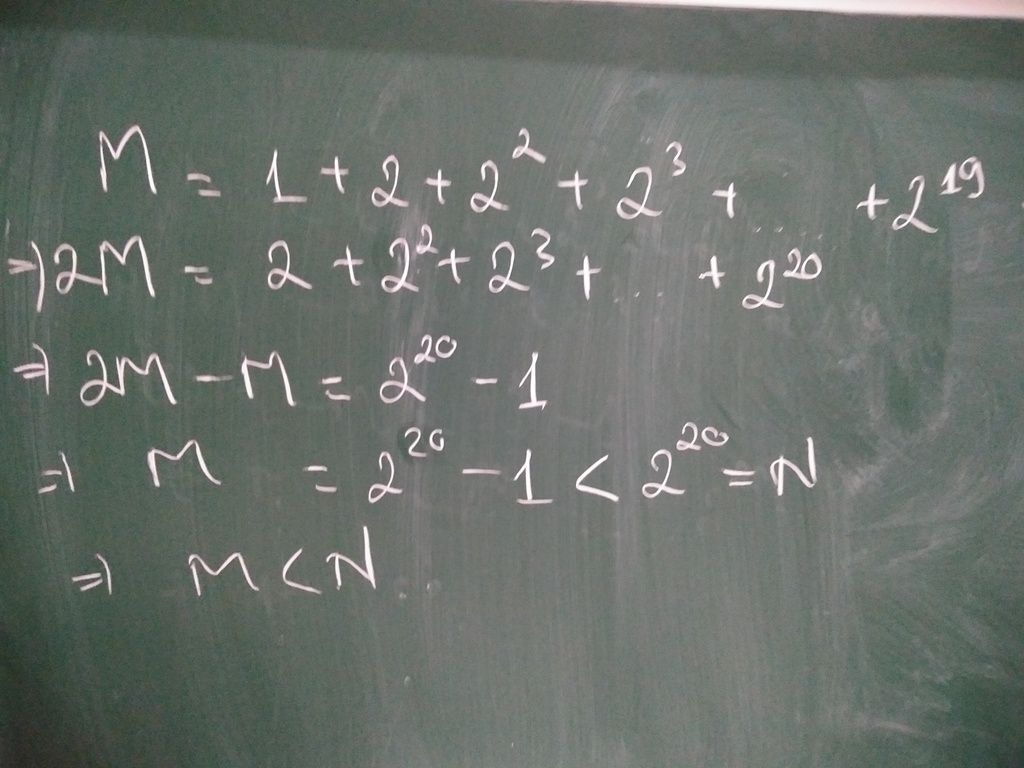 M = 1 + 2 + 2² + 2³ + .... + 2¹⁹
⇒ 2M = 2 + 2² + 2³ + ... + 2²⁰
⇒ 2M - M = 2²⁰ - 1
⇒ M = 2²⁰ - 1 < 2²⁰ = N
⇒ M < N.